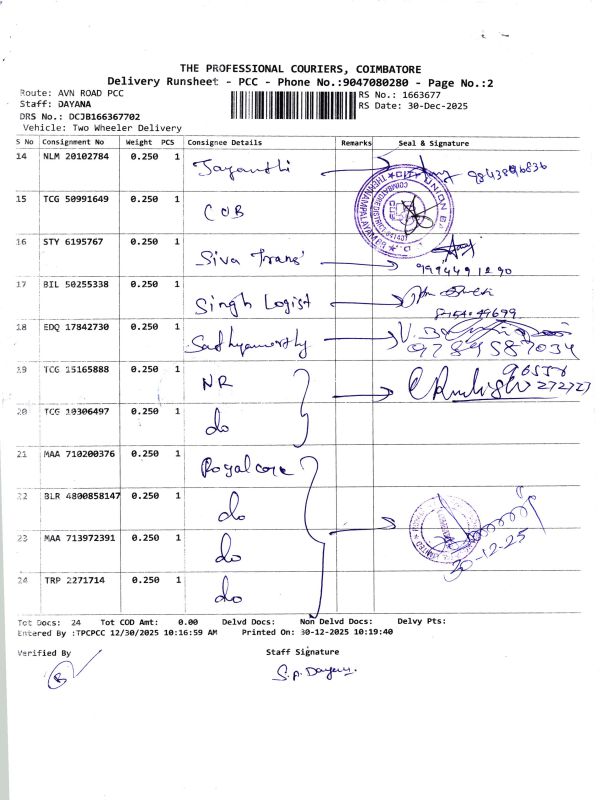 -2-
THE PROFESSIONAL COURIERS, COIMBATORE
Delivery Runsheet - PCC - Phone No.:9047080280 - Page No.:2
Route: AVN ROAD PCC
RS No.: 1663677
Staff: DAYANA
RS Date: 30-Dec-2025
DRS No.: DCJB166367702
Vehicle: Two Wheeler Delivery
S No Consignment No Weight PCS Consignee Details Remarks Seal & Signature
14 NLM 20102784 0.250 1 Jayanthi 9843896836
15 TCG 50991649 0.250 1 CUB
CITY UNION B
16 STY 6195767 0.250 1 Siva Trans' 9994491290
17 BIL 50255338 0.250 1 Singh Logist
18 EDQ 17842730 0.250 1 Sathyamorthy 9789587034
19 TCG 15165888 0.250 1 NR 96556 272727
20 TCG 10306497 0.250 1 do
21 MAA 710200376 0.250 1 Royal care
22 BLR 4800858147 0.250 1 do
23 MAA 713972391 0.250 1 do 30-12-25
24 TRP 2271714 0.250 1 do
Tot Docs: 24 Tot COD Amt: 0.00 Delvd Docs: Non Delvd Docs: Delvy Pts:
Entered By :TPCPCC 12/30/2025 10:16:59 AM Printed On: 30-12-2025 10:19:40
Verified By Staff Signature
S.P. Dayana